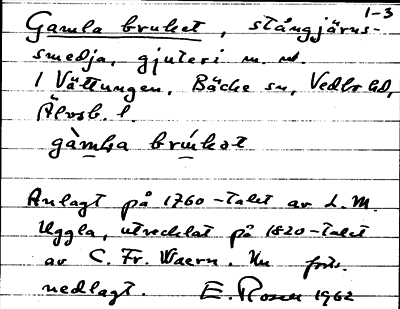 1-3
Gamla bruket, stångjärns-
smedja, gjuteri m. m.
I Vättungen, Bäcke sn, Vedbo hd,
Älvsb. l.
gàmḷa brúkət
Anlagt på 1760-talet av L. M.
Uggla, utvecklat på 1820-talet
av C. Fr. Waern. Nu förs.
nedlagt. E. Rosen 1962